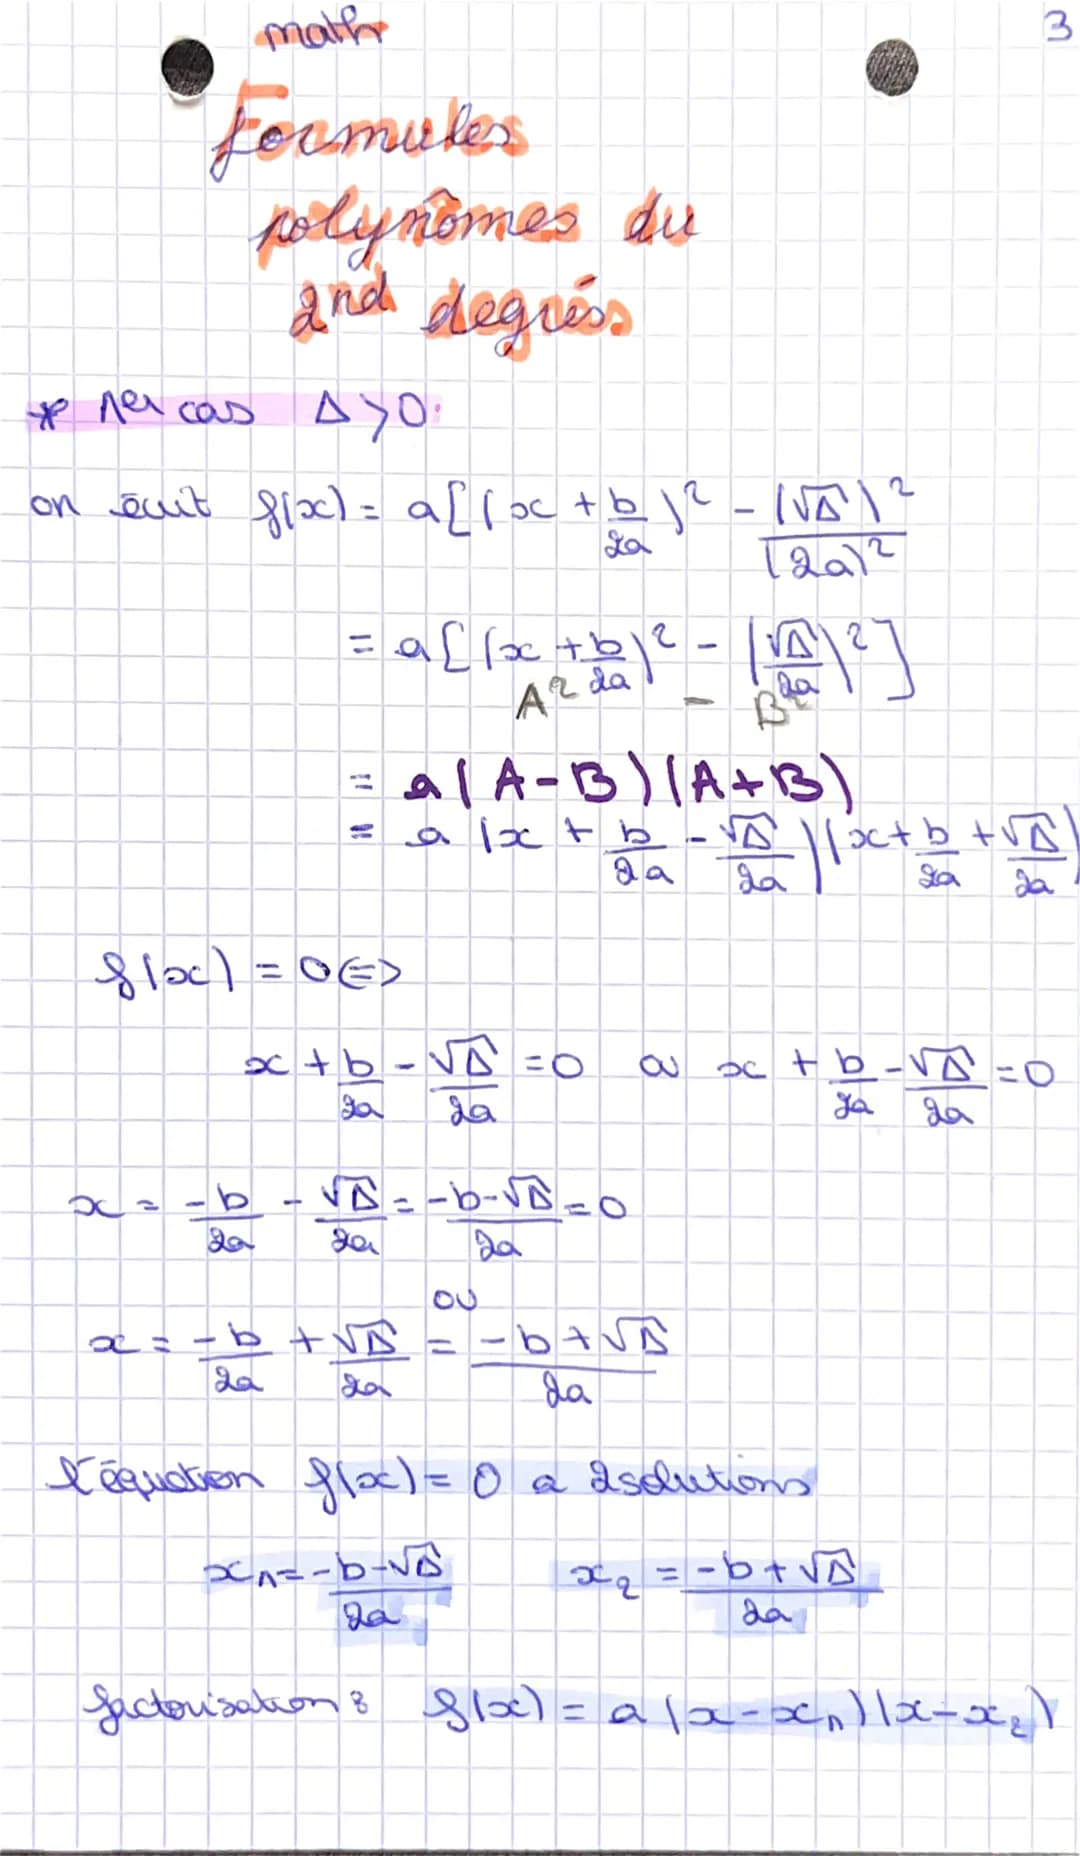 math
3
Formules
polynômes du
2nd degrés
* 1er cas Δ>0:
on écrit f(x) = a[(x + b/2a)² - (√Δ)²/(2a)²
= a[(x + b/2a)² - (√Δ/2a)²]
A² - B²
= a(A-B)(A+B)
= a(x + b/2a - √Δ/2a)(x + b/2a + √Δ/2a)
f(x) = 0 <=>
x + b/2a - √Δ/2a = 0 ou x + b/2a - √Δ/2a = 0
x = -b/2a - √Δ/2a = -b-√Δ/2a = 0
ou
x = -b/2a + √Δ/2a = -b+√Δ/2a
l'équation f(x) = 0 a 2 solutions
x₁ = -b-√Δ/2a x₂ = -b+√Δ/2a
factorisation : f(x) = a(x-x₁)(x-x₂)